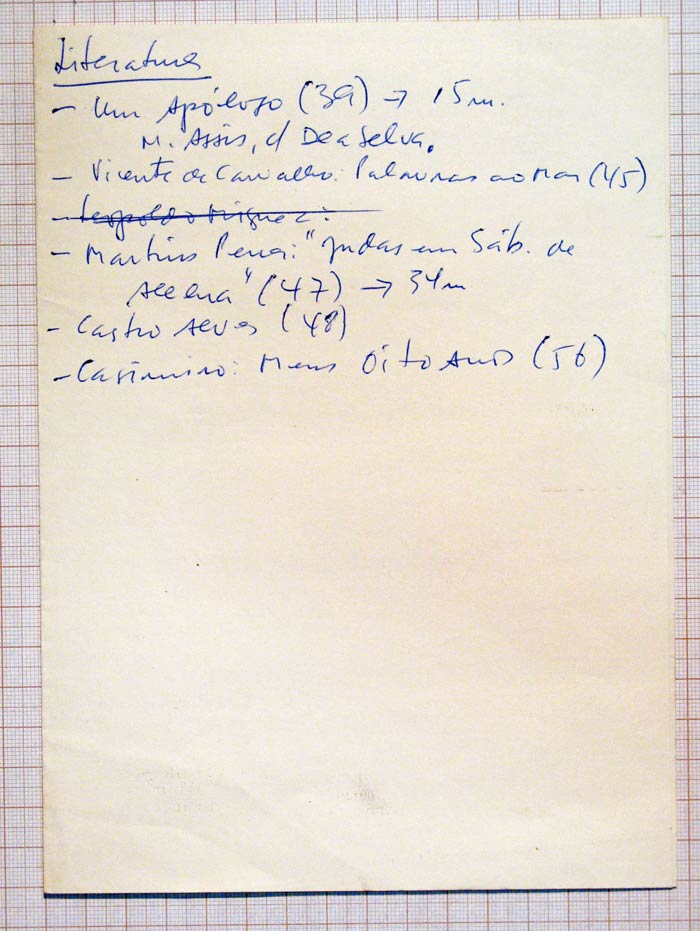 Literatura
- Um Apólogo (39) → 15m.
M. Assis, d/ Dea Selva.
- Vicente de Carvalho: Palavras ao Mar (45)
- Leopoldo Miguez:
- Martins Pena: "Judas em Sáb. de
Aleluia" (47) → 34m
- Castro Alves (48)
- Casimiro: Meus Oito Anos (56)